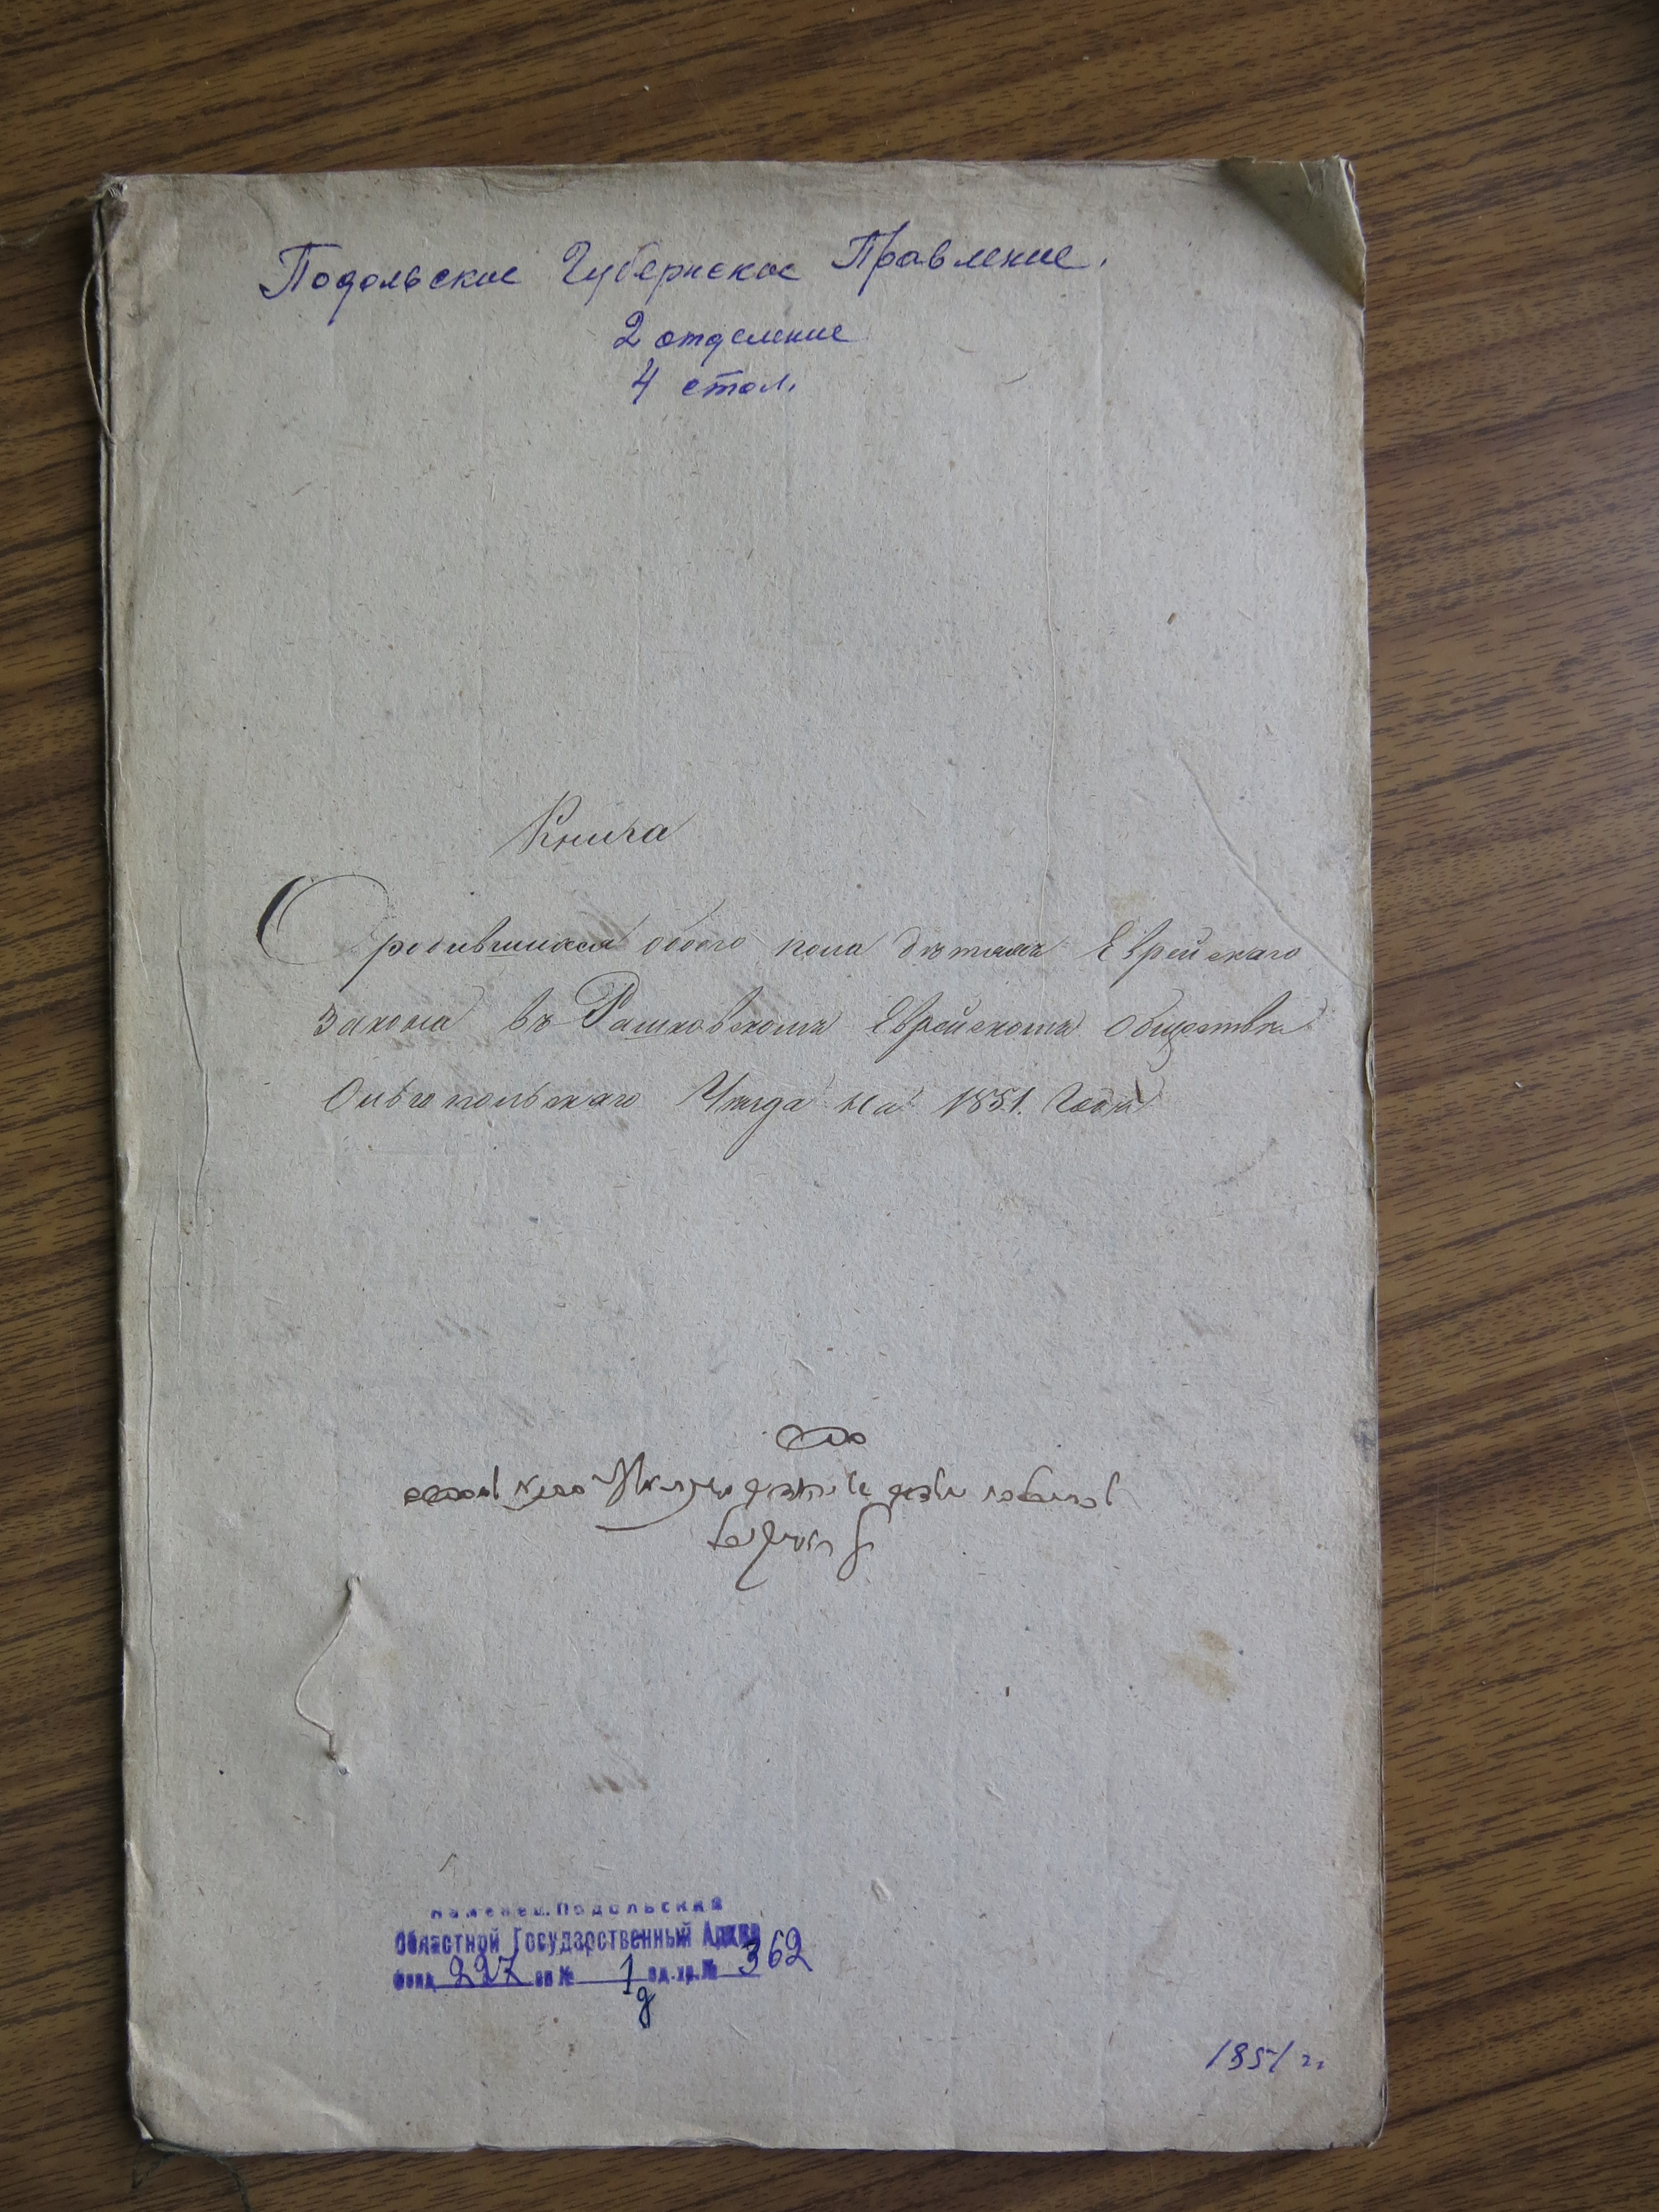 Подольское Губернское Правление.
2 отделение
4 стол.
Книга
О родившихся обоего пола дѣтяхъ Еврейскаго
Закона въ Рашковскомъ Еврейскомъ Обществѣ
Ольгопольскаго Уѣзда на 1851. Годъ
Каменец.Подольский
Областной Государственный Архив
Фонд 227 оп № 1д ед.хр.№ 362
1851 г.